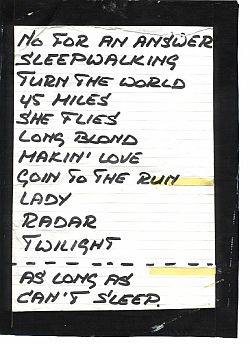 NO FOR AN ANSWER
SLEEPWALKING
TURN THE WORLD
45 MILES
SHE FLIES
LONG BLOND
MAKIN' LOVE
GOIN TO THE RUN
LADY
RADAR
TWILIGHT
AS LONG AS
CAN'T SLEEP.